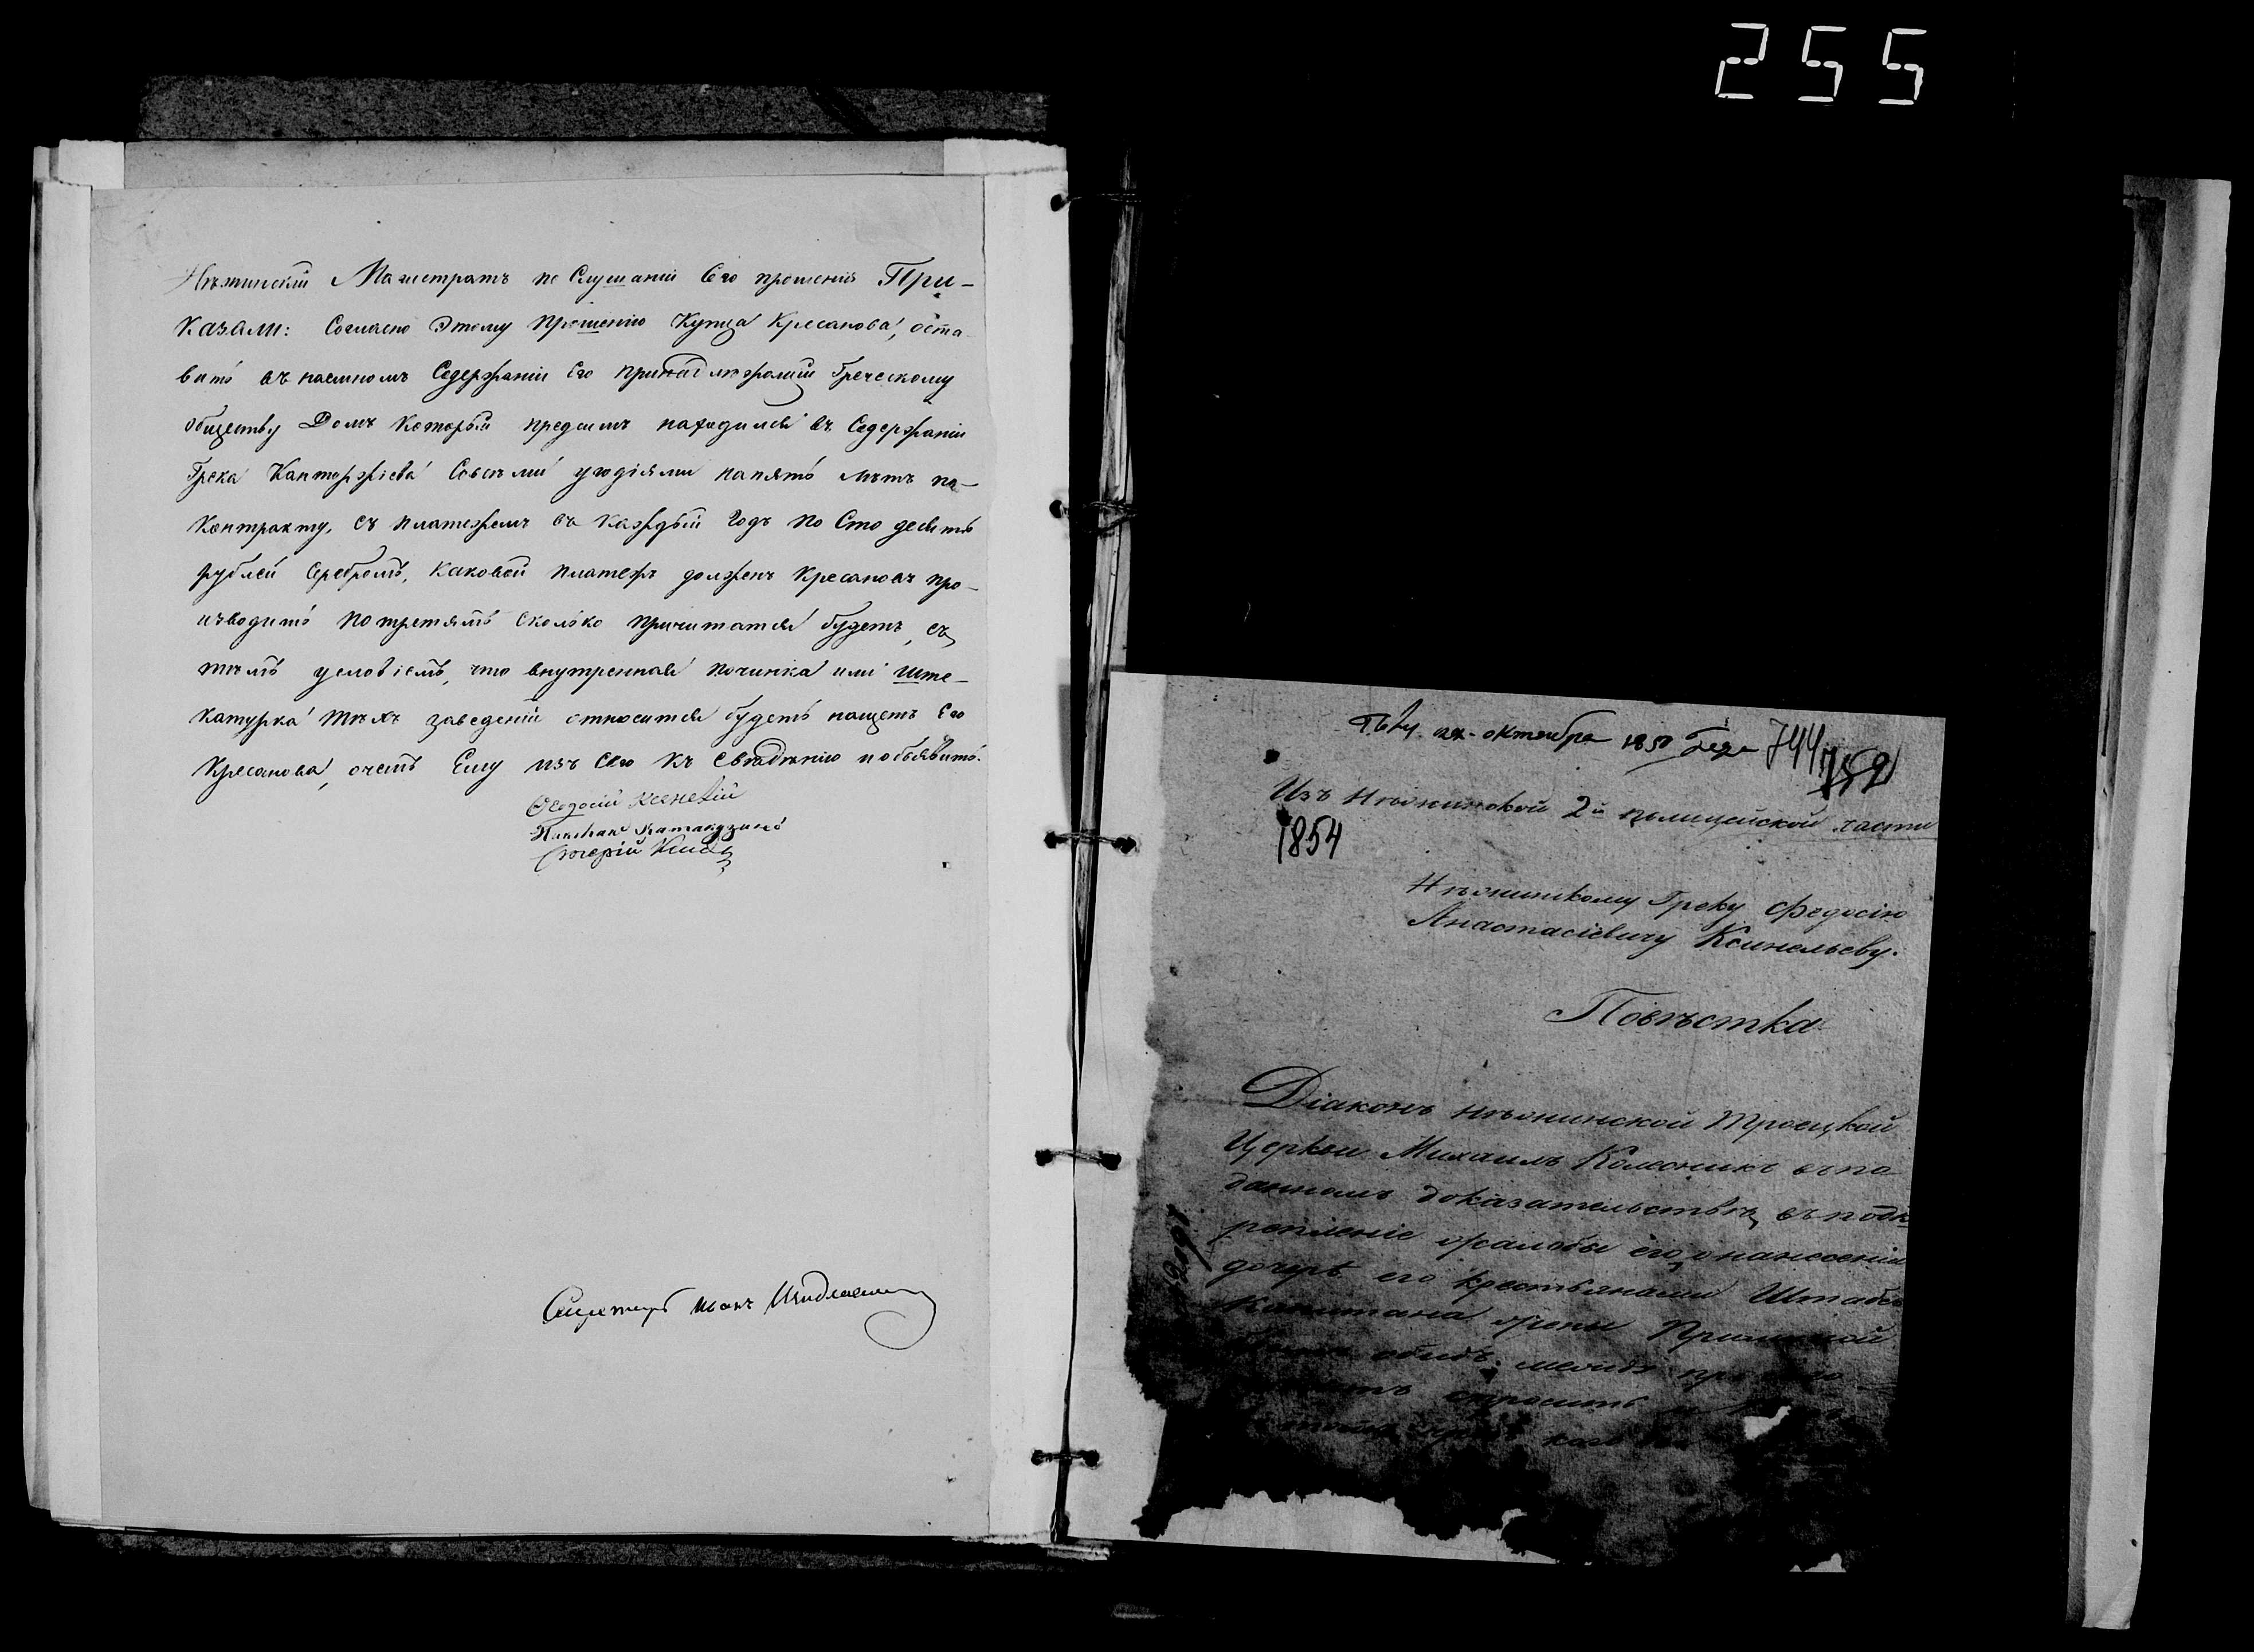 255
Нѣжинскій Магистратъ по Слушаніи Сего прошенія При-
Казали: Согласно Этому Прошенію Купца Кресанова, оста-
вить въ наемномъ Содержаніи Его принадлежащій Греческому
обществу Домъ Который предсимъ находился въ Содержаніи
Грека Канторжіева Совсѣми угодіями напять лѣтъ по-
Контракту, съ платежемъ въ Каждый Годъ по Сто десять
рублей Серебромъ, каковой платежъ долженъ Кресановъ про-
изводить потретямъ сколько причитатся будетъ, съ
тѣмъ условіемъ, что внутренная починка или ште-
катурка тѣхъ заведеній относится будетъ нащетъ Его
Кресанова, очемъ Ему изъ Сего къ Свѣдѣнію и объявить.
Феодосій
Секретарь Иванъ
октября 1854 года 744 752
Изъ Нѣжинской 2й полицейской части
1854
Нѣжинскому Греку Федосію
Анастасіевичу Ксинельеву.
Повѣстка
Діаконъ Нѣжинской Троецкой
Церкви Михаилъ Колесникъ въ по
данномъ доказательствѣ, въ подк
репленіе жалобы его, о нанесеніи
дочерѣ его крестьянами Штабсъ
Капитана жены
обидъ. между
спросить